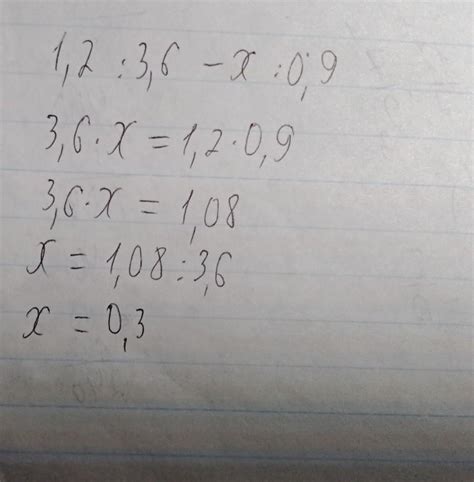 1,2 : 3,6 - x : 0,9
3,6 · x = 1,2 · 0,9
3,6 · x = 1,08
x = 1,08 : 3,6
x = 0,3